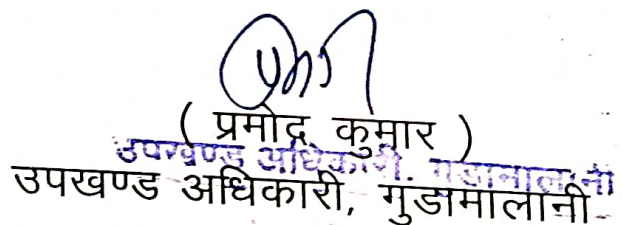 ( प्रमोद कुमार )
उपखण्ड अधिकारी. गुडामालानी
उपखण्ड अधिकारी, गुडामालानी